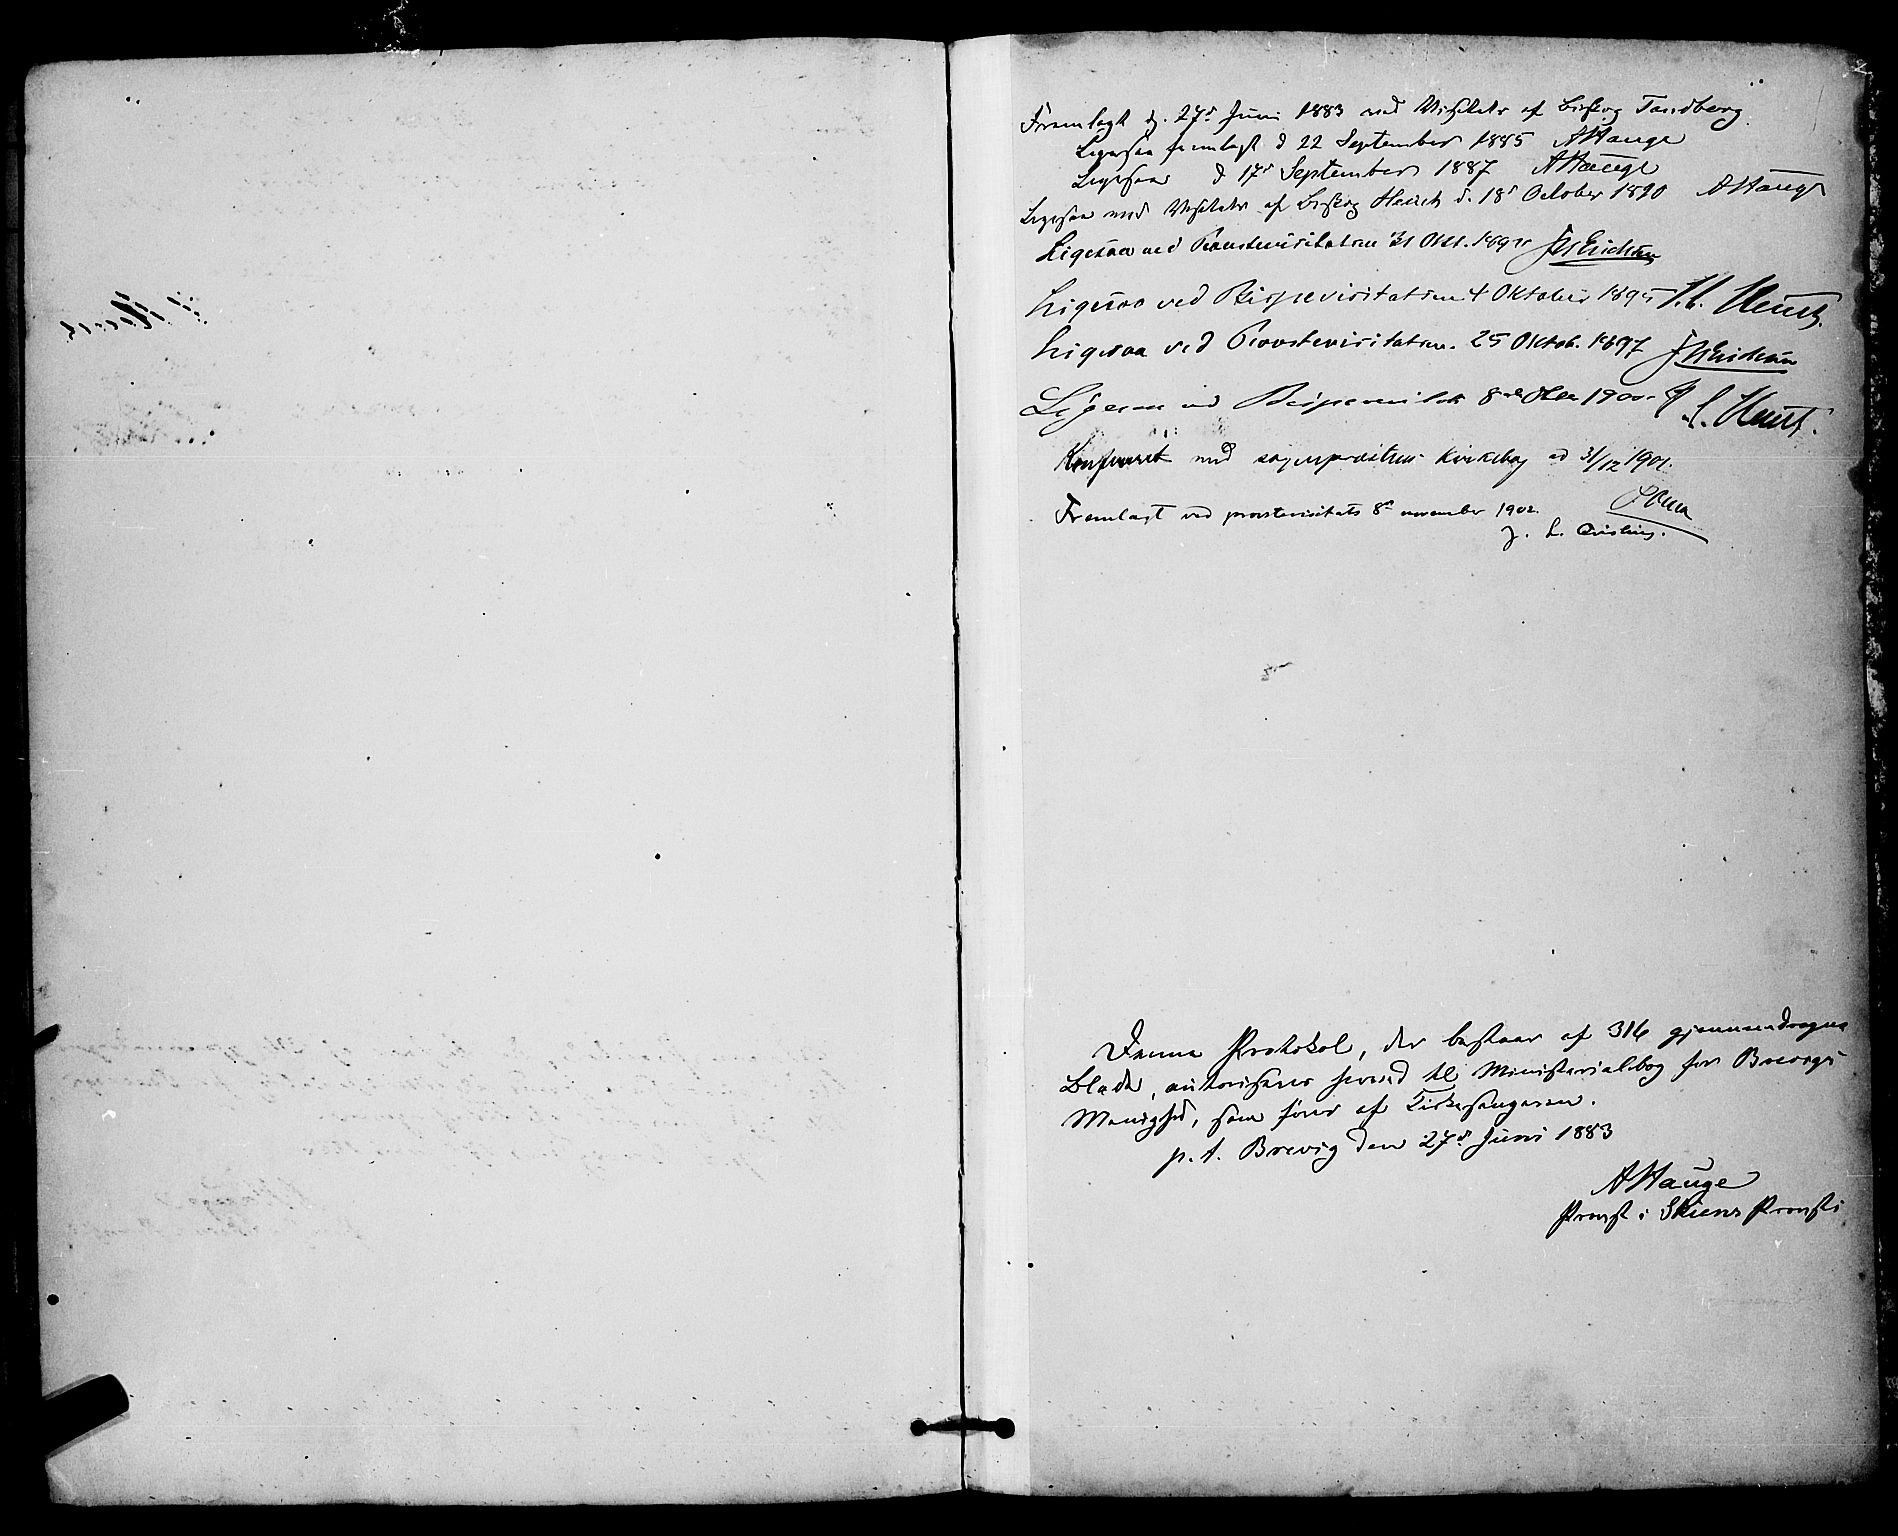 Fremlagt d. 27d Juni 1883 ved Visitats af Biskop Tandberg.
Ligesaa fremlagt d 22 September 1885 AHauge
Ligesaa d 17d September 1887 AHauge
Ligesaa ved Visitats af Biskop Heuch d. 18d October 1890 AHauge
Ligesaa ved Provstevisitatsen 31 Okt. JNErichsen
Ligesaa ved Bispevisitatsen 4 Oktober 1895 J. C. Heuch.
Ligesaa ved Provstevisitatsen. 25 Oktob. 1897 JNErichsen
Ligesaa ved Bispevisitats 8de 1900 J. C. Heuch.
Konfereret med sogneprestens kirkebog 31/12 1901.
Fremlagt ved provstevisitats 8d november 1902
J. L. Qvisling.
Denne Protokol, der bestaar af 316 gjennemdragne
Blade, autoriseres herved til Ministerialbog for Brevigs
Menighed, som føres af Kirkesangeren.
p. t. Brevig den 27d Juni 1883
AHauge
Provst i Skiens Provsti